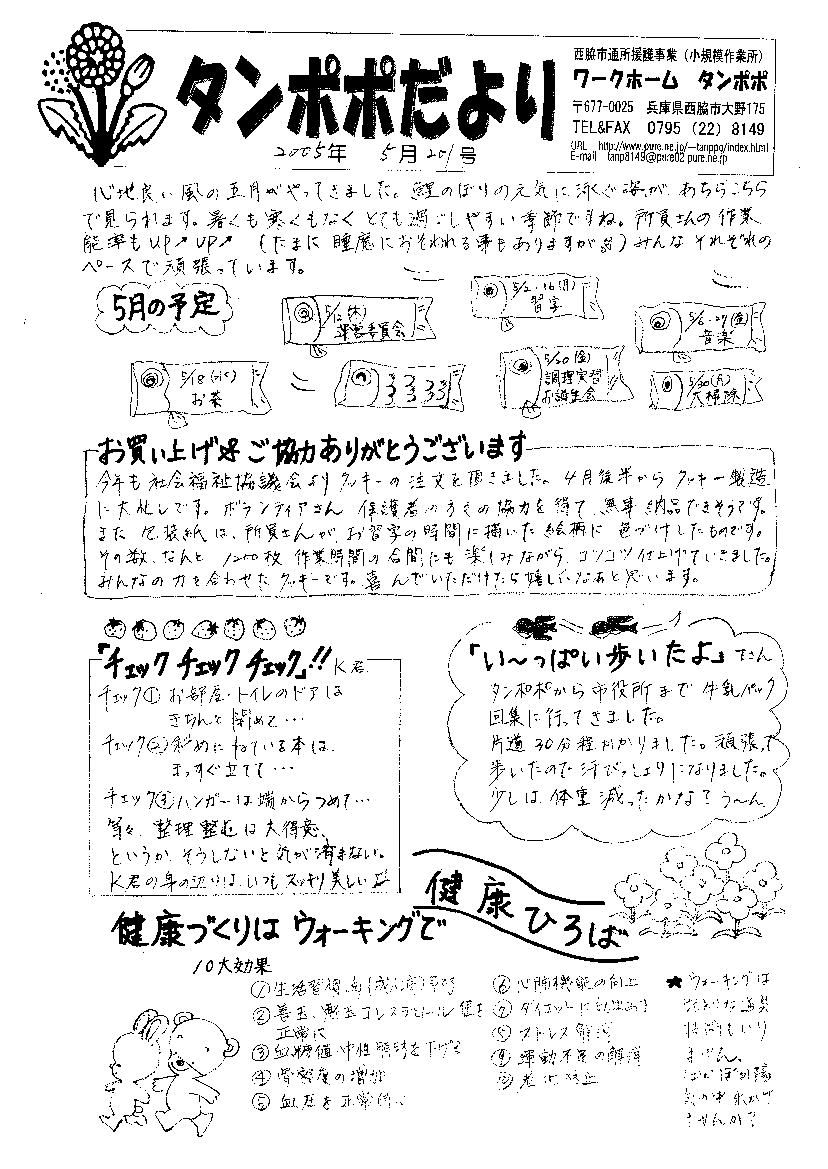 タンポポだより
2005年 5月 20号
西脇市通所援護事業（小規模作業所）
ワークホーム タンポポ
〒677-0025 兵庫県西脇市大野175
TEL&FAX 0795 (22) 8149
URL http://www.pure.ne.jp/~tanppq/index.html
E-mail tanp8149@pure02.pure.ne.jp
心地良い風の五月がやってきました。鯉のぼりの元気に泳ぐ姿が、あちらこちら
で見られます。暑くも寒くもなくとても過ごしやすい季節ですね。所員さんの作業
能率もUP↗UP↗ (たまに睡魔におそわれる事もありますが) みんなそれぞれの
ペースで頑張っています。
5月の予定
5/2(木)
運営委員会
5/2・16(月)
習字
5/6・27(金)
音楽
5/18(水)
お茶
5/20(金)
調理実習
お誕生会
5/30(月)
大掃除
お買い上げ ご協力ありがとうございます
今年も社会福祉協議会よりクッキーの注文を頂きました。4月後半からクッキー製造
に大忙しです。ボランティアさん 保護者の方々の協力を得て、無事納品できそうです。
また 包装紙は、所員さんが、お習字の時間に描いた絵柄に 色づけしたものです。
その数、なんと 1200枚 作業時間の合間にも楽しみながら、コツコツ仕上げていきました。
みんなの力を合わせたクッキーです。喜んでいただけたら嬉しいなあと思います。
「チェック チェック チェック」!! K君
チェック① お部屋・トイレのドアは
きちんと閉めて…
チェック② 斜めにねている本は、
まっすぐ立てて…
チェック③ ハンガーは端からつめて…
等々、整理整とんは大得意、
というか、そうしないと気が済まない。
K君の身の辺りは、いつもスッキリ美しい
「い〜っぱい歩いたよ」 Tさん
タンポポから市役所まで牛乳パック
回集に行ってきました。
片道30分程かかりました。頑張って
歩いたので汗びっしょりになりました。
少しは、体重減ったかな？う〜ん
健康ひろば
健康づくりは ウォーキングで
10大効果
① 生活習慣病(成人病)予防
② 善玉、悪玉コレステロール値を
正常に
③ 血糖値・中性脂肪を下げる
④ 骨密度の増加
⑤ 血圧を正常に
⑥ 心肺機能の向上
⑦ ダイエットに効果あり
ストレス解消
運動不足の解消
老化防止
★ウォーキングは
特別な道具
技術もいり
ません。